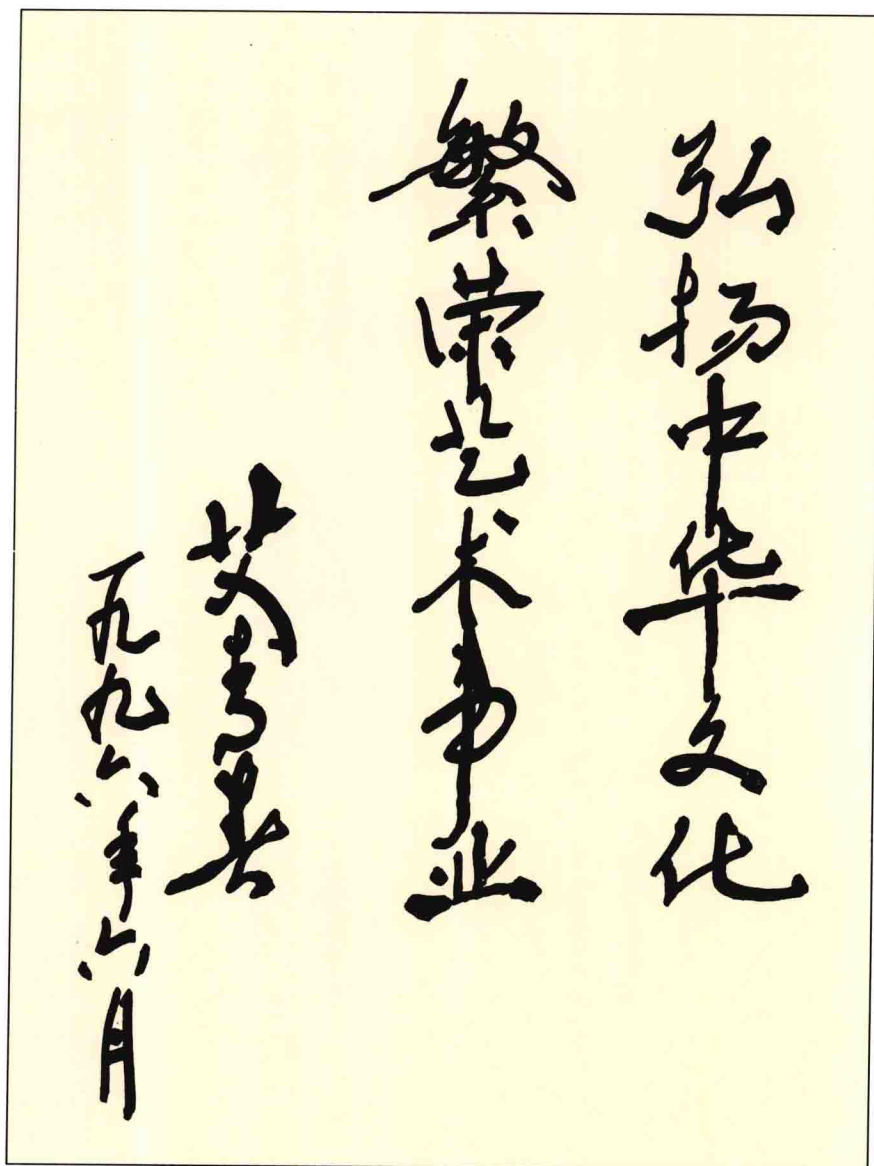 弘扬中华文化
繁荣艺术事业
艾青
一九九六年六月